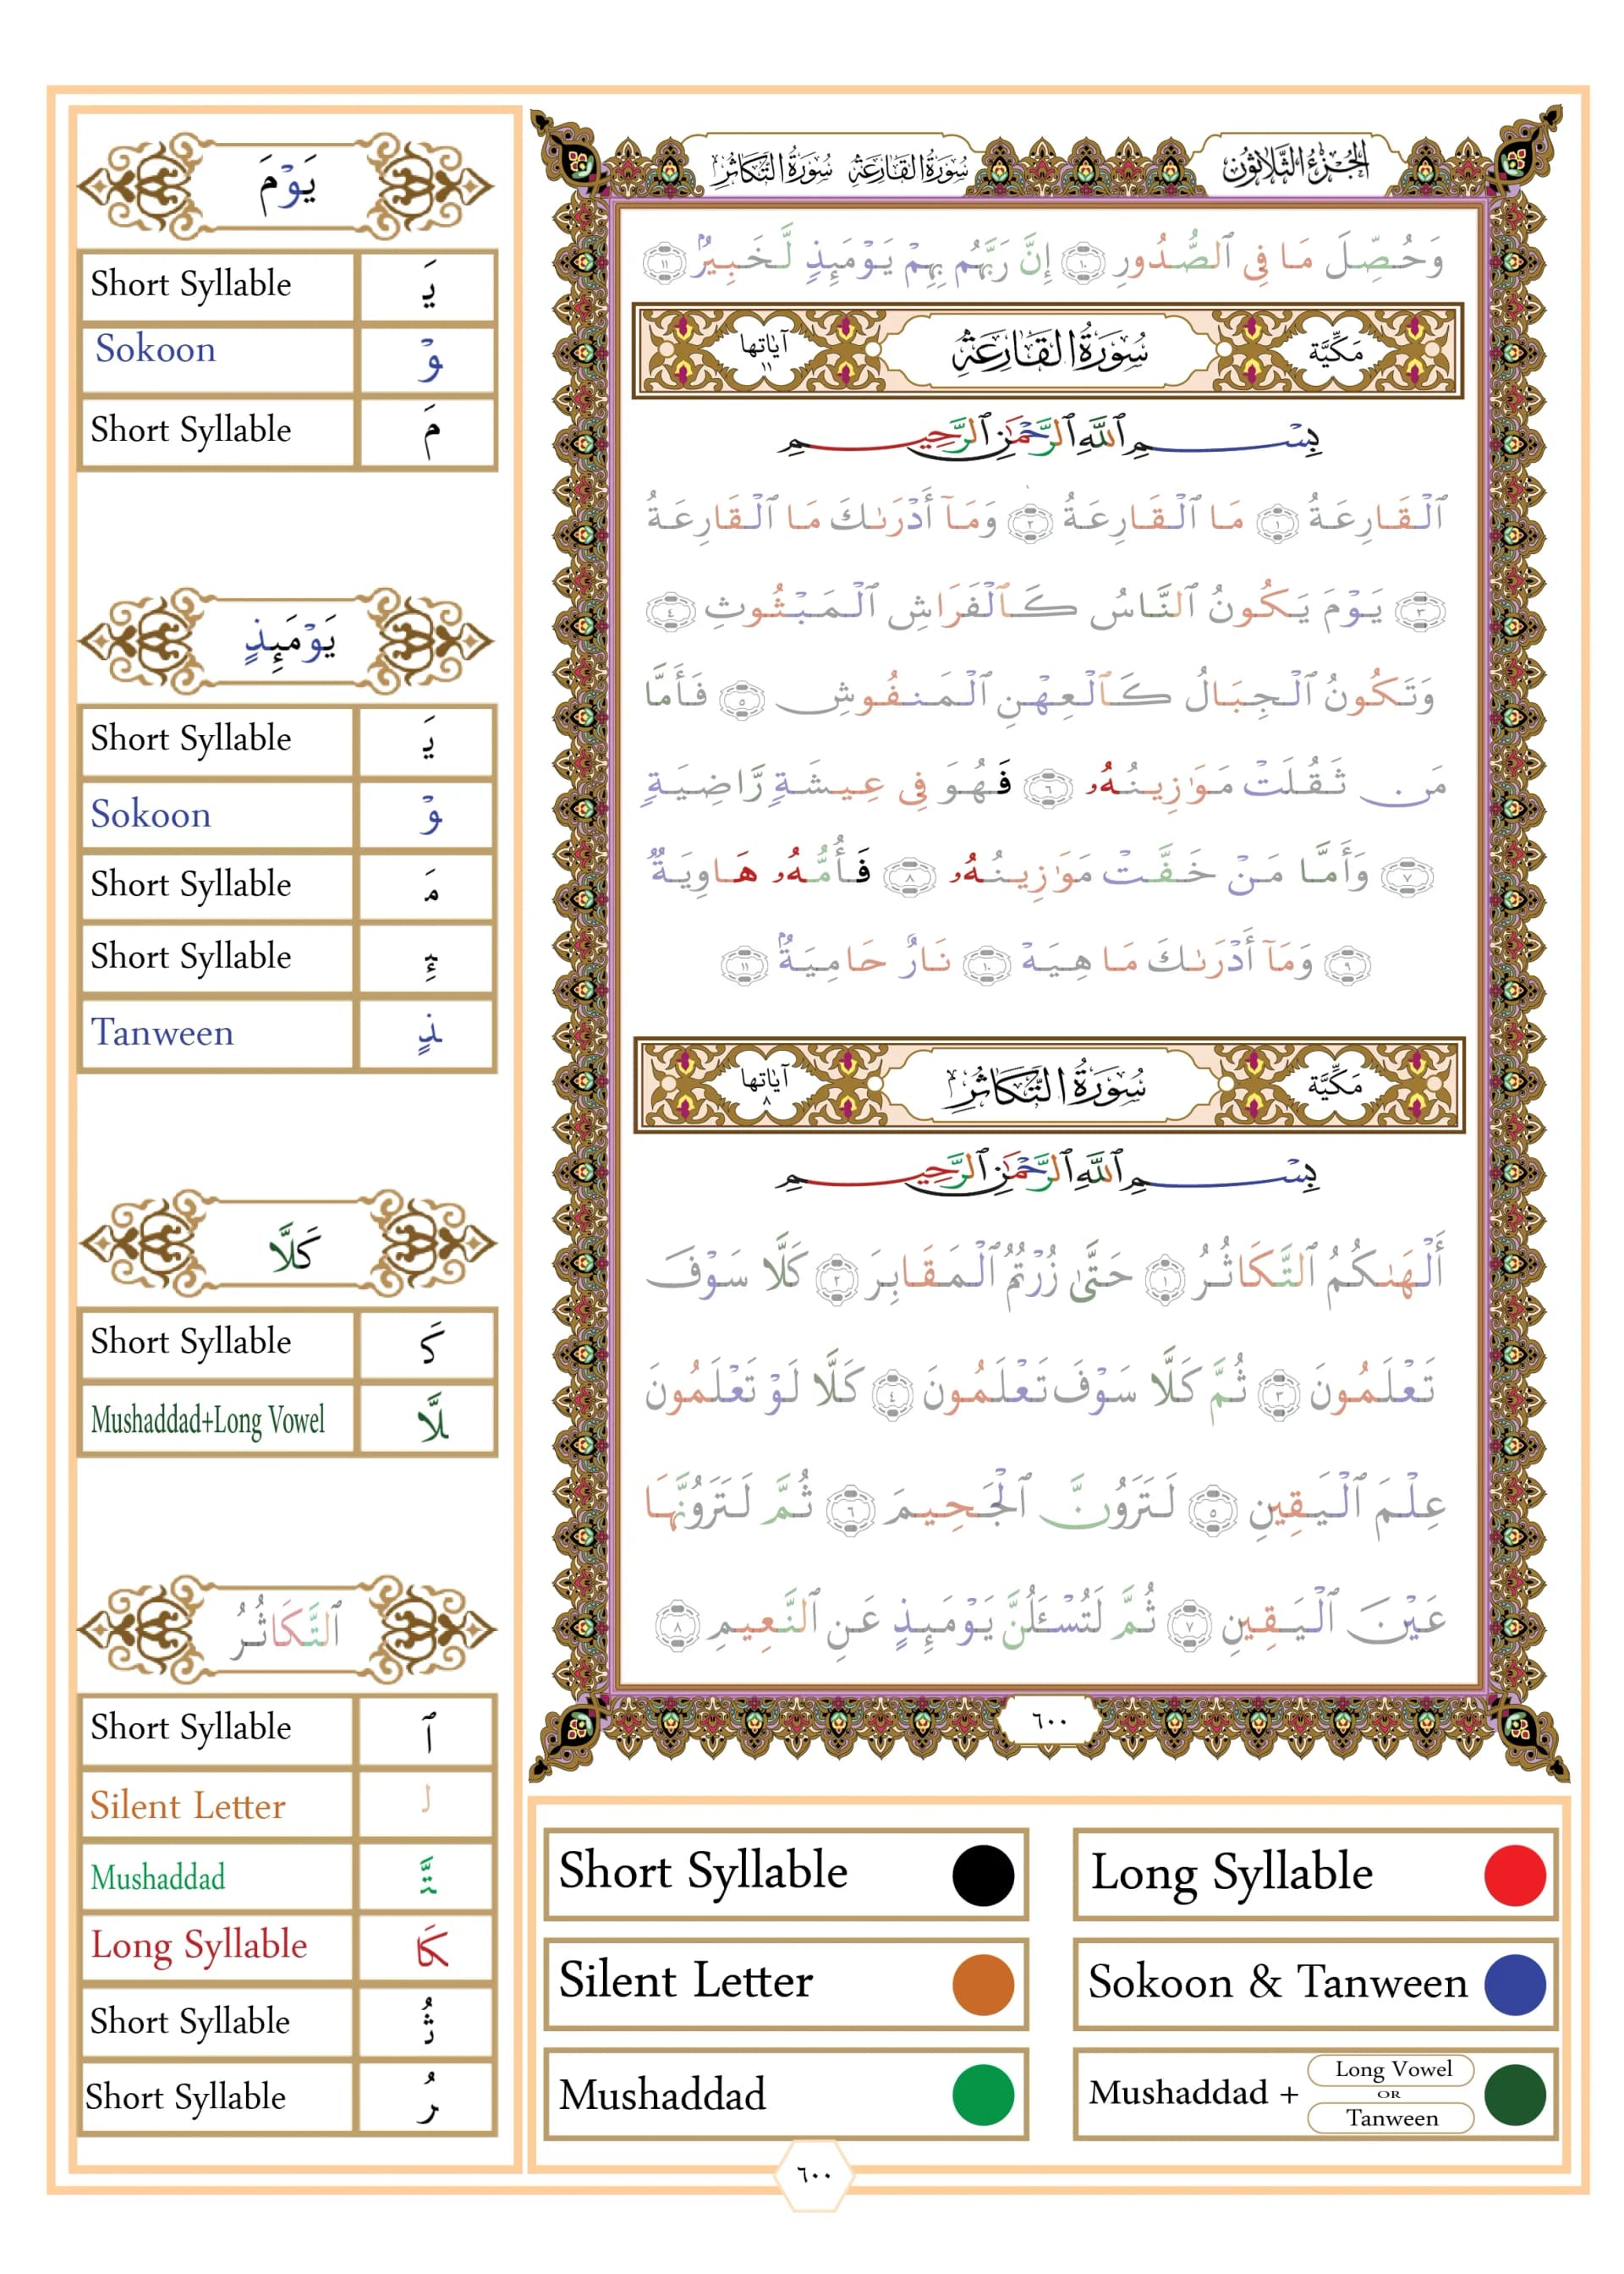 الجُزْءُ الثَّلَاثُون
سُورَةُ القَارِعَةِ سُورَةُ التَّكَاثُرِ
وَحُصِّلَ مَا فِى ٱلصُّدُورِ ١٠ إِنَّ رَبَّهُم بِهِمْ يَوْمَئِذٍ لَّخَبِيرٌۢ ١١
مَكِّيَّة
سُورَةُ القَارِعَةِ
آيَاتها ١١
بِسْمِ ٱللَّهِ ٱلرَّحْمَٰنِ ٱلرَّحِيمِ
ٱلْقَارِعَةُ ١ مَا ٱلْقَارِعَةُ ٢ وَمَآ أَدْرَىٰكَ مَا ٱلْقَارِعَةُ
٣ يَوْمَ يَكُونُ ٱلنَّاسُ كَٱلْفَرَاشِ ٱلْمَبْثُوثِ ٤
وَتَكُونُ ٱلْجِبَالُ كَٱلْعِهْنِ ٱلْمَنفُوشِ ٥ فَأَمَّا
مَن ثَقُلَتْ مَوَٰزِينُهُۥ ٦ فَهُوَ فِى عِيشَةٍ رَّاضِيَةٍ
٧ وَأَمَّا مَنْ خَفَّتْ مَوَٰزِينُهُۥ ٨ فَأُمُّهُۥ هَاوِيَةٌ
٩ وَمَآ أَدْرَىٰكَ مَا هِيَهْ ١٠ نَارٌ حَامِيَةٌۢ ١١
مَكِّيَّة
سُورَةُ التَّكَاثُرِ
آيَاتها ٨
بِسْمِ ٱللَّهِ ٱلرَّحْمَٰنِ ٱلرَّحِيمِ
أَلْهَىٰكُمُ ٱلتَّكَاثُرُ ١ حَتَّىٰ زُرْتُمُ ٱلْمَقَابِرَ ٢ كَلَّا سَوْفَ
تَعْلَمُونَ ٣ ثُمَّ كَلَّا سَوْفَ تَعْلَمُونَ ٤ كَلَّا لَوْ تَعْلَمُونَ
عِلْمَ ٱلْيَقِينِ ٥ لَتَرَوُنَّ ٱلْجَحِيمَ ٦ ثُمَّ لَتَرَوُنَّهَا
عَيْنَ ٱلْيَقِينِ ٧ ثُمَّ لَتُسْـَٔلُنَّ يَوْمَئِذٍ عَنِ ٱلنَّعِيمِ ٨
٦٠٠
يَوْمَ
Short Syllable يَ
Sokoon وْ
Short Syllable مَ
يَوْمَئِذٍ
Short Syllable يَ
Sokoon وْ
Short Syllable مَ
Short Syllable ئِ
Tanween ذٍ
كَلَّا
Short Syllable كَ
Mushaddad+Long Vowel لَّا
ٱلتَّكَاثُرُ
Short Syllable ٱ
Silent Letter ل
Mushaddad تَّ
Long Syllable كَا
Short Syllable ثُ
Short Syllable رُ
Short Syllable
Long Syllable
Silent Letter
Sokoon & Tanween
Mushaddad
Mushaddad + Long Vowel OR Tanween
٦٠٠